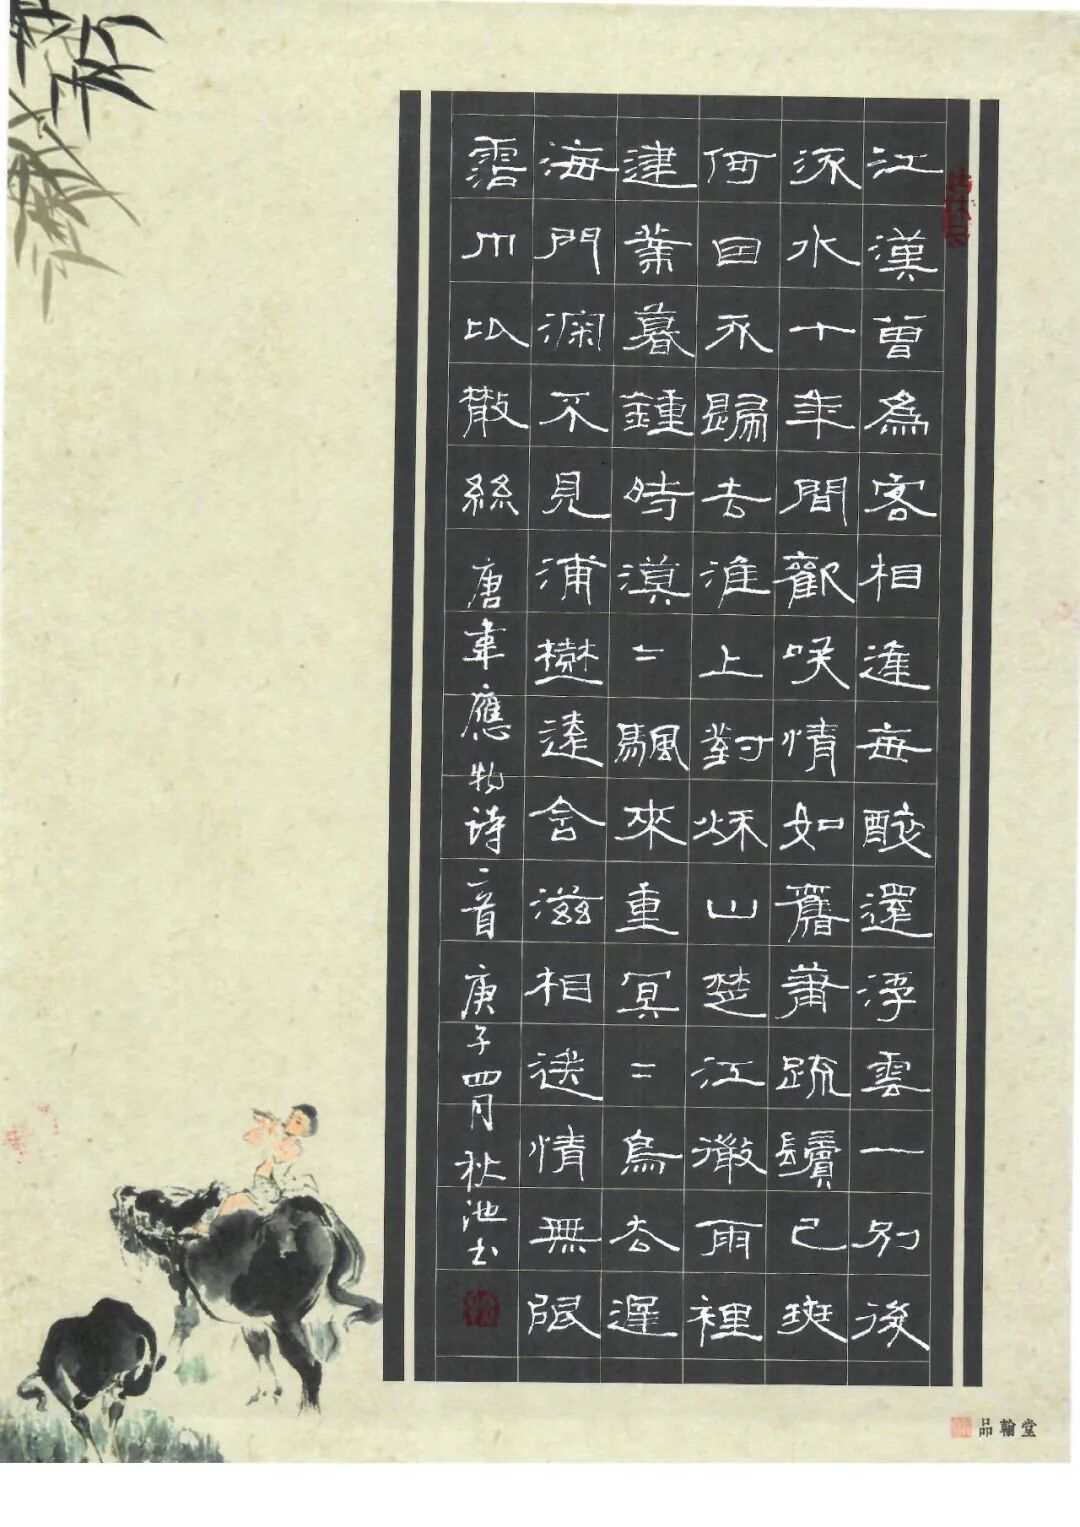 江漢曾為客相逢每醉還浮雲一別後
流水十年間歡咲情如舊蕭疏鬢已斑
何因不歸去淮上對秌山楚江微雨裡
建業暮鍾時漠〻颿來重冥〻鳥去遲
海門深不見浦樹遠含滋相送情無限
霑巾比散絲 唐韋應物詩二首 庚子四月秋池书
品翰堂